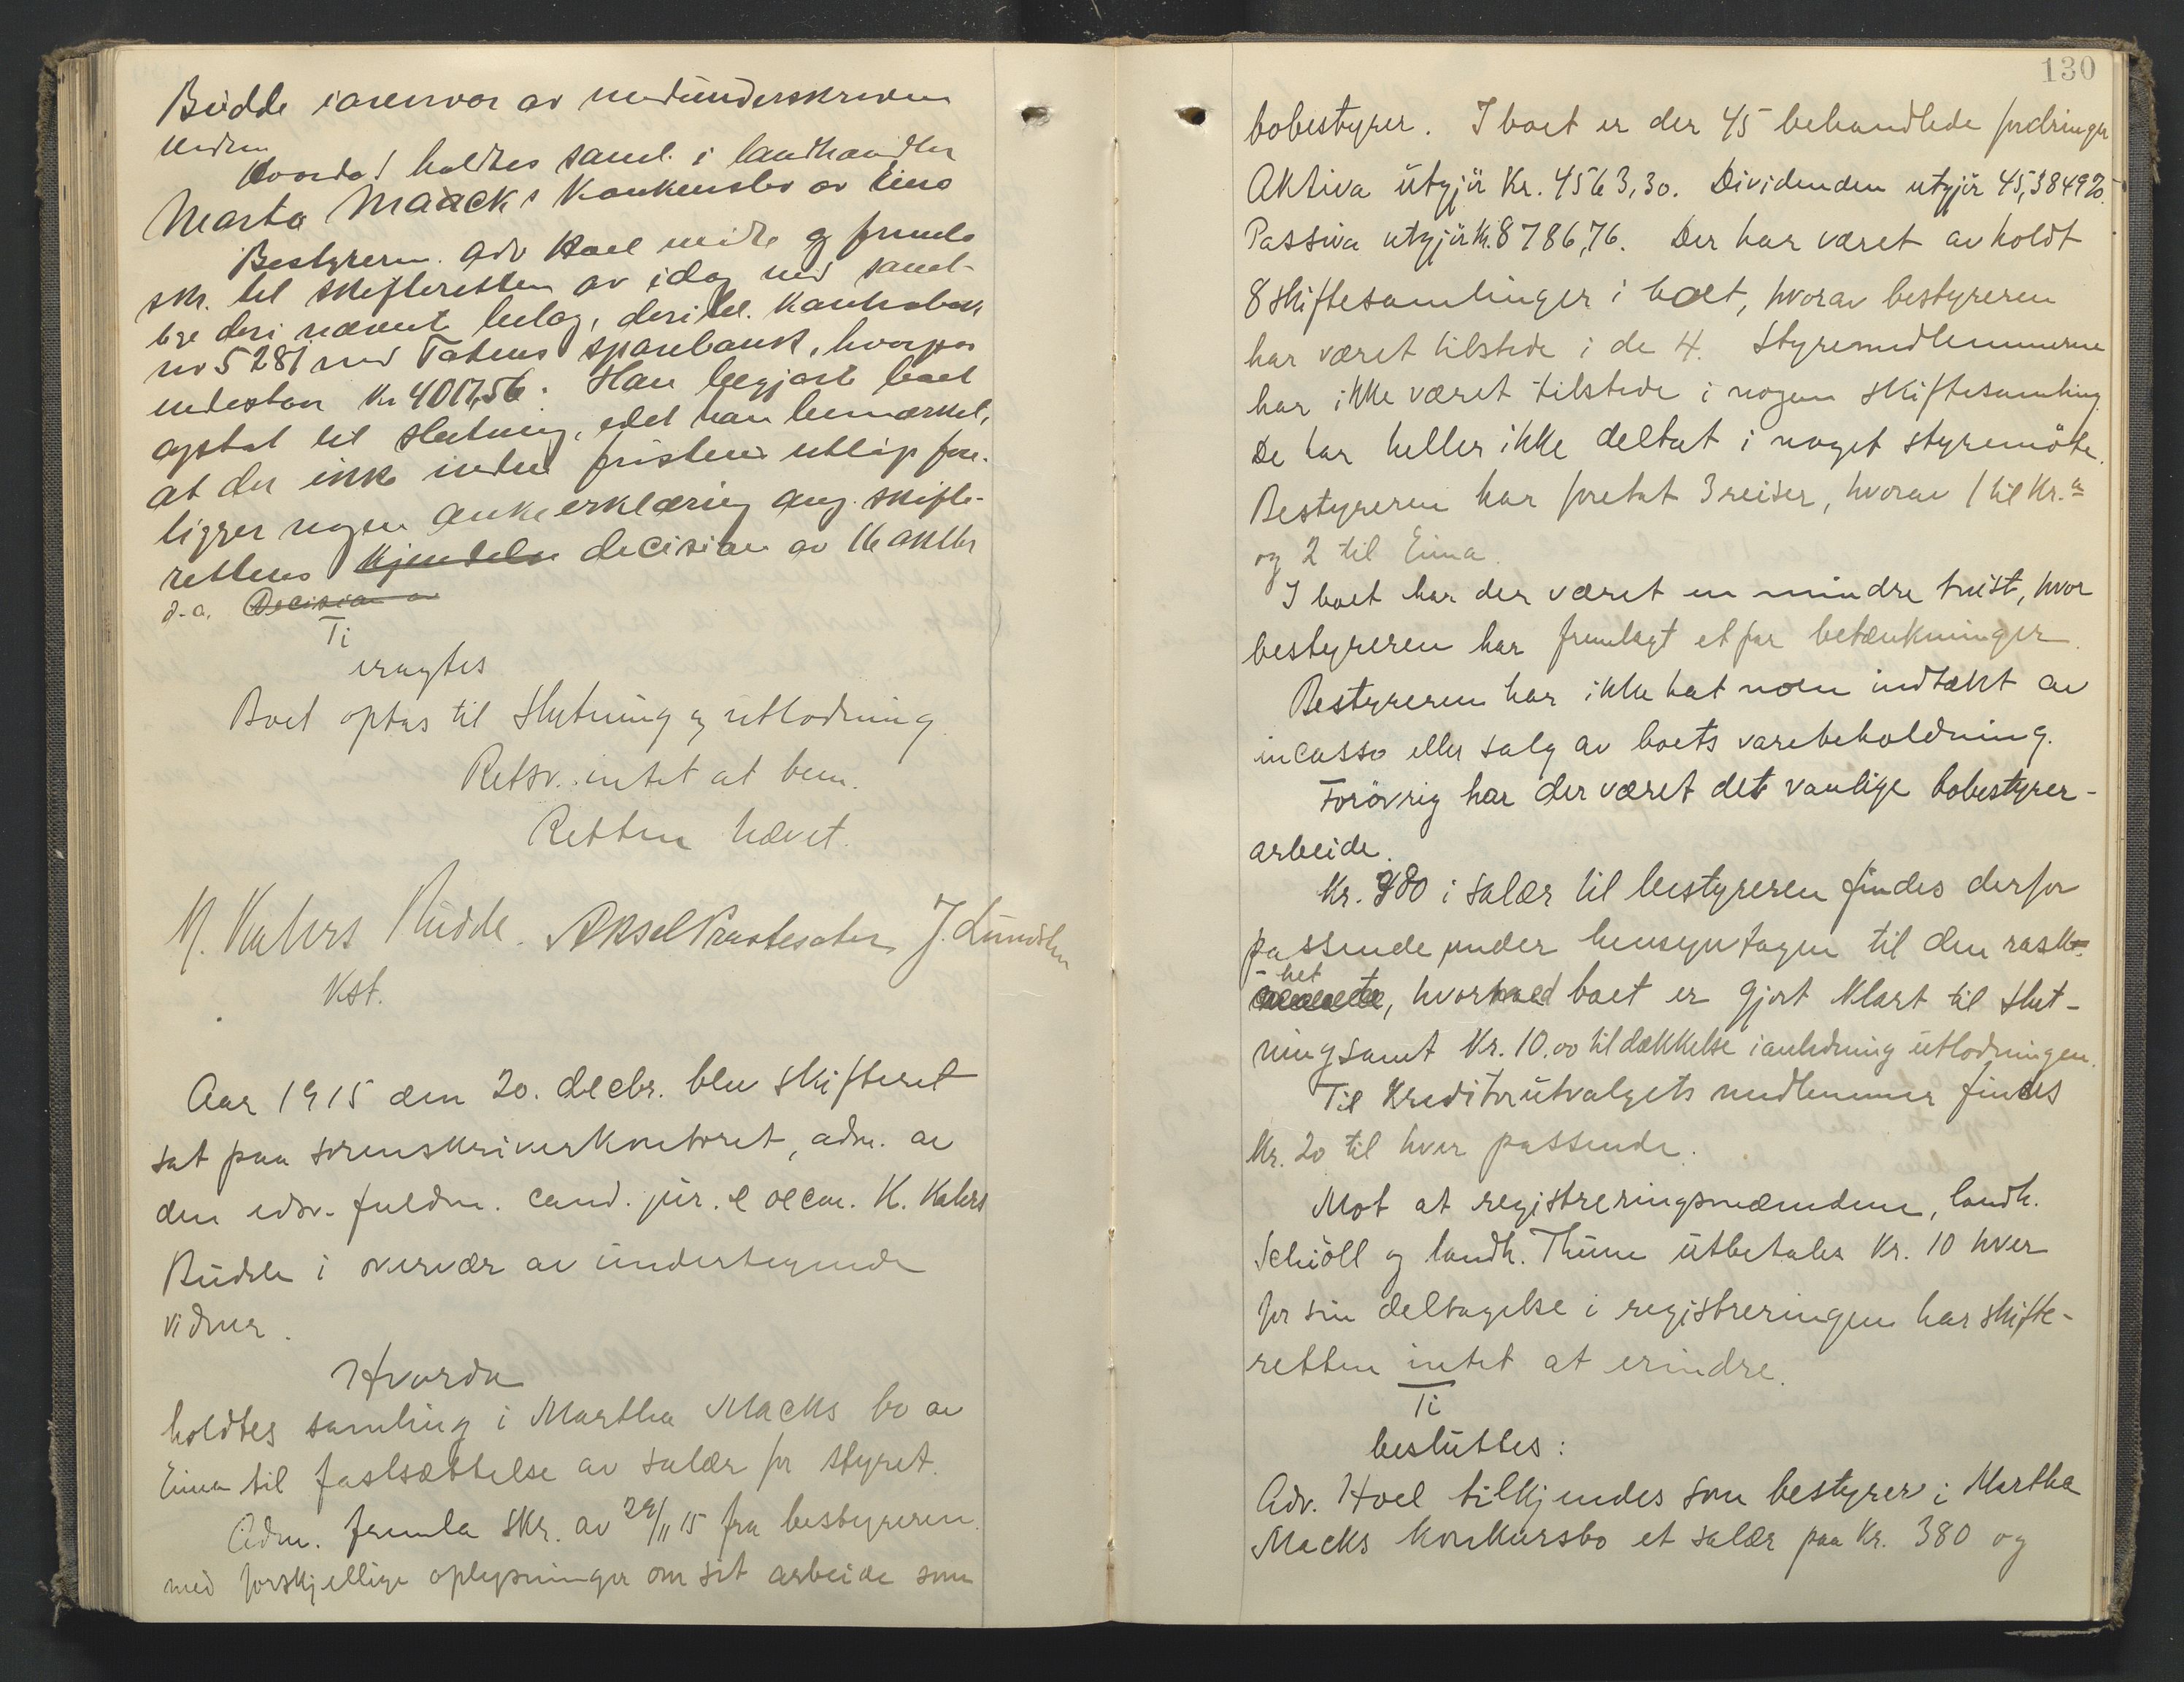 Budde i overvær av medunderskrevne
vidner
Hvorda! holdtes saml. i landhandler
Marta Maacks konkursbo av Eina
Bestyreren adv Hoel mötte og fremla
skr. til skifteretten av idag med samt-
lige deri nævnt bilag, deribl. Kontrabok
nr 5281 med Totens sparebank, hvorpaa
indestaar Kr 4017,56. Han begjærte boet
optat til slutning, idet han bemærket,
at der ikke inden fristens utlöp fore-
ligger nogen ankeerklæring ang. skifte-
rettens kjendelse decision av 16 oktbr
d.a. Decision av
Ti
eragtes
Boet optas til slutning og utlodning.
Retsv. intet at bem.
Retten hævet.
K. Kahrs Budde. Aksel J. Lundsten
Kst.
Aar 1915 den 20. decbr. blev skifteret
sat paa sorenskriverkontoret, adm. av
den edsv. fuldm. cand. jur. & oecon. K. Kahrs
Budde i overvær av undertegnede
vidner.
Hvorda
holdtes samling i Martha Macks bo av
Eina til fastsættelse av salær for styret.
Adm. fremla skr. av 29/11 15 fra bestyreren
med forskjellige oplysninger om sit arbeide som
130
bobestyrer. I boet er der 45 behandlede fordringer
Aktiva utgjör Kr. 4563,30. Dividenden utgjör 45,3849%.
Passiva utgjör Kr. 8786,76. Der har været avholdt
8 skiftesamlinger i boet, hvorav bestyreren
har været tilstede i de 4. Styremedlemmerne
har ikke været tilstede i nogen skiftesamling.
De har heller ikke deltat i noget styremöte.
Bestyreren har foretat 3 reiser, hvorav 1 til Kr.a
og 2 til Eina.
I boet har der været en mindre tvist, hvor
bestyreren har fremlagt et par betænkninger.
Bestyreren har ikke hat noen indtækt av
incasso eller salg av boets varebeholdning.
Forövrig har der været det vanlige bobestyrer-
arbeide.
Kr. 380 i salær til bestyreren findes derfor
passende under hensyntagen til den rask-
-het
, hvormed boet er gjort klart til slut-
ning samt Kr. 10.00 til dækkelse i anledning utlodningen.
Til Kreditorutvalgets medlemmer findes
Kr. 20 til hver passende.
Mot at registreringsmændene, landh.
Schiöll og landh. Thune utbetales Kr. 10 hver
for sin deltagelse i registreringen har skifte-
retten intet at erindre.
Ti
besluttes:
Adv. Hoel tilkjendes som bestyrer i Martha
Macks konkursbo et salær paa Kr. 380 og